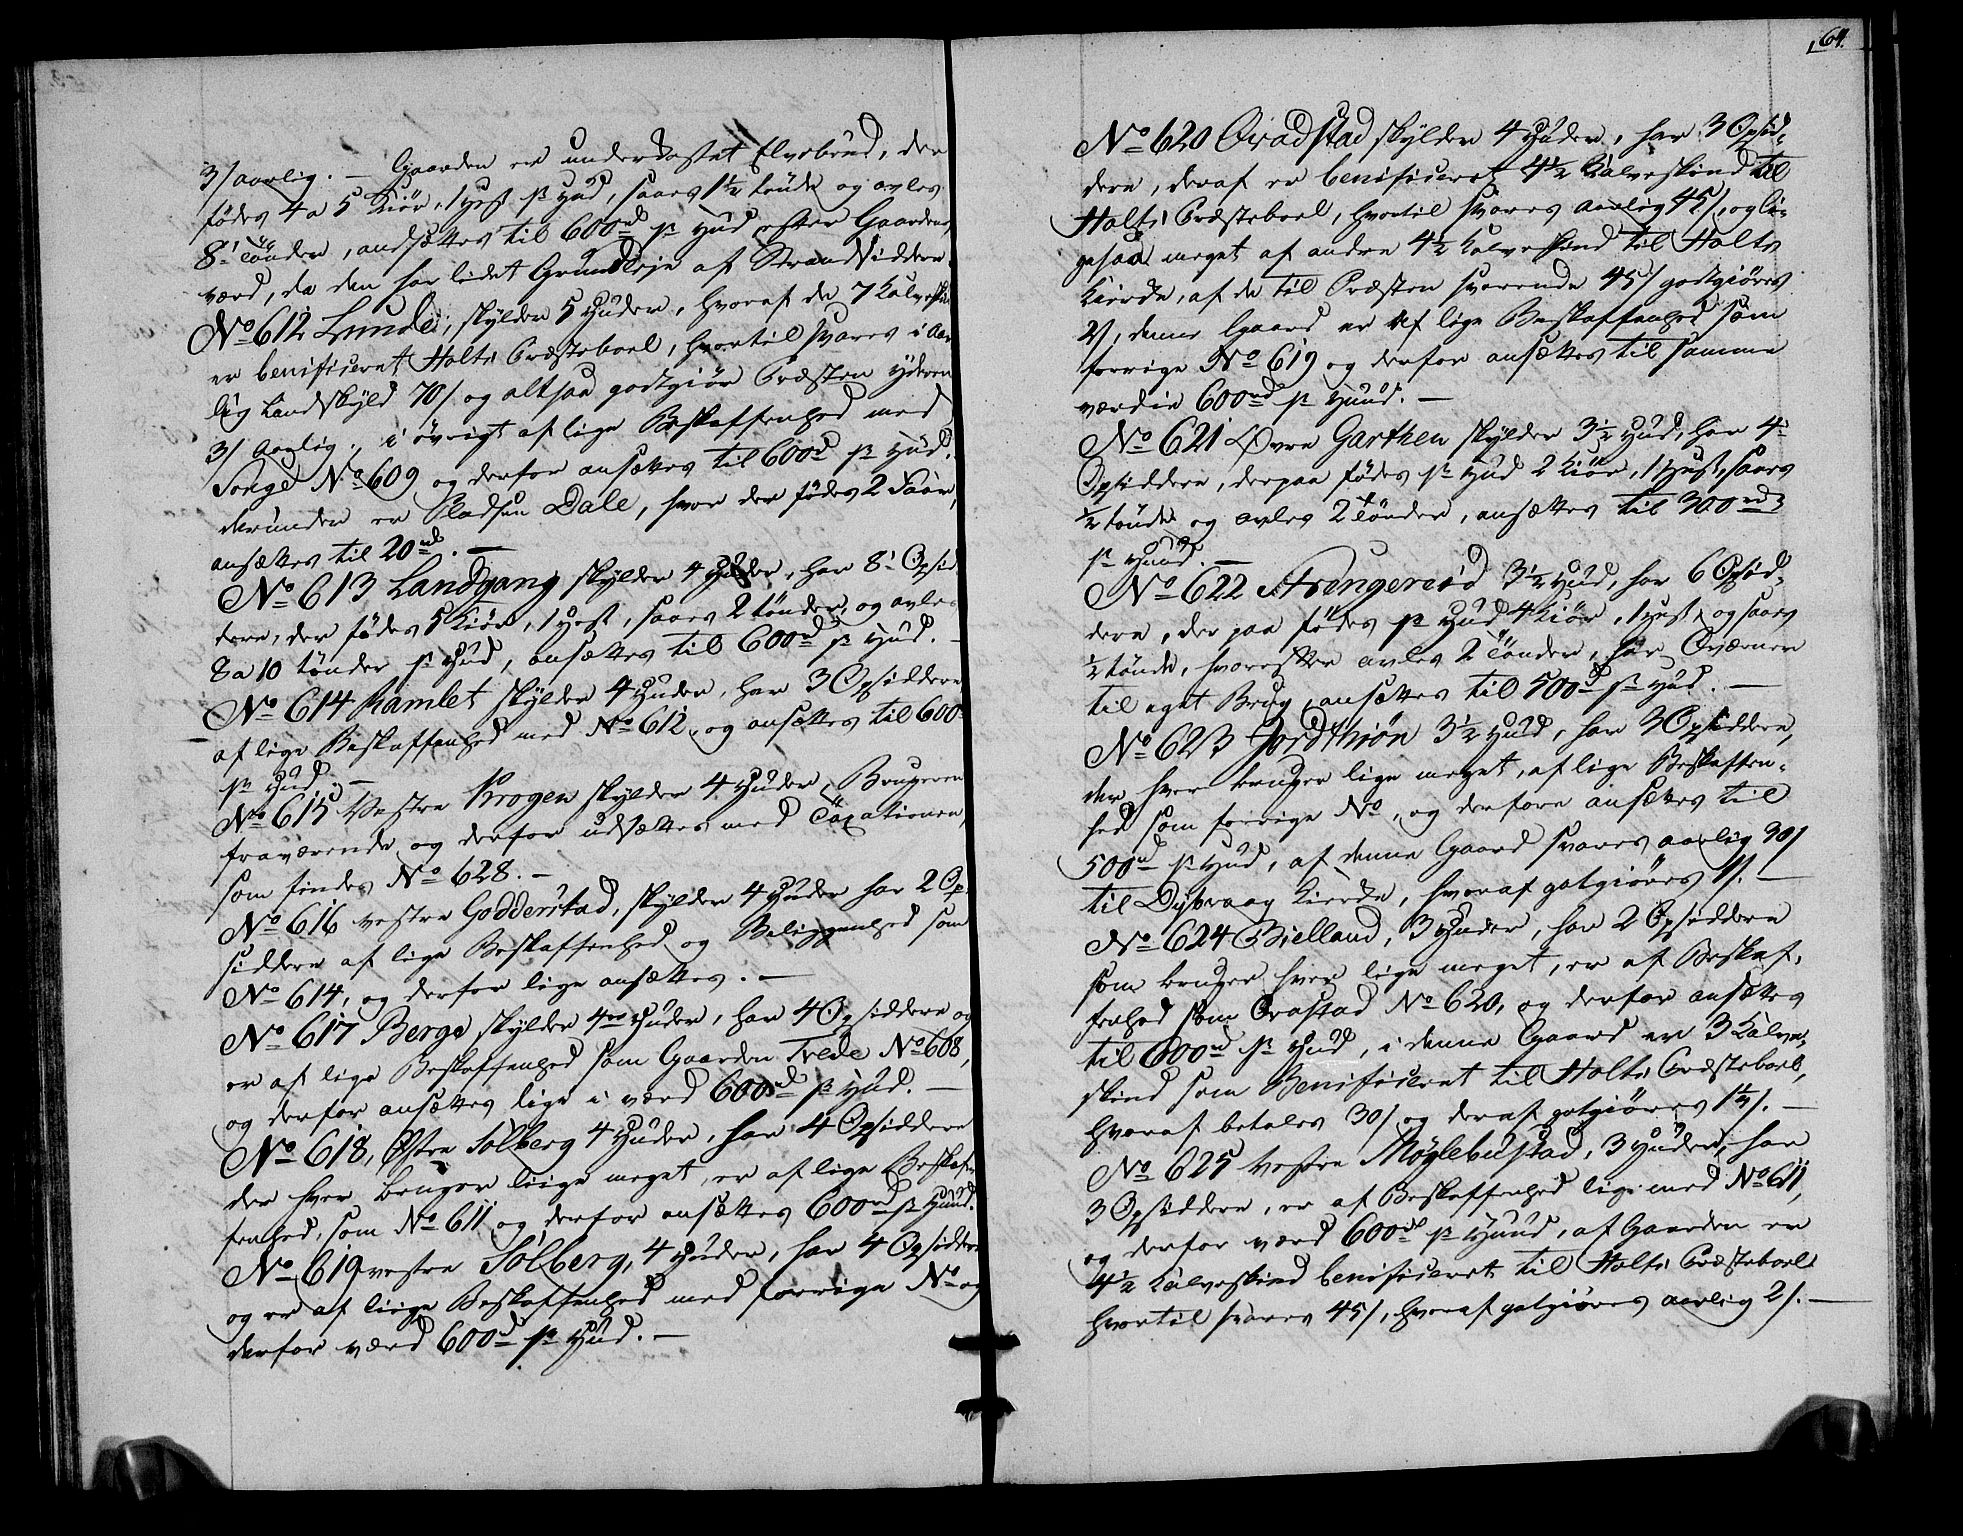 3/ aarlig. — Gaarden er underkastet Elvebrud, der
fødes 4 a 5 Kiør, 1 Hest pr Hud, saaes 1½ tønde og avles
8 Tønder, andsættes til 600rd pr Hud efter Gaardens
værd, da den har lidet Grundleje af Strandsiddere.
No 612 Lunde, skylder 5 Huder, hvoraf de 7 Kalveskin
er benificeret Holts Præsteboel, hvortil svares i Aar
lig Landskyld 70/ og altsaa godtgiør Præsten yderen
3/ Aarlig, i øvrigt af lige Beskaffenhed med
Songe No 609 og derfor ansættes til 600rd pr Hud.
derunder er Pladsen Dale, hvor der fødes 2 Faar,
ansættes til 20rd. —
No 613 Landgang skylder 4 Huder, har 8 Opsid
dere, der fødes 5 Kiør, 1 Hest, saaes 2 tønder, og avles
8 a 10 tønder pr Hud, ansættes til 600rd pr Hud. —
No 614 Ramlet skylder 4 Huder, har 3 Opsiddere
af lige Beskaffenhed med No 612, og ansættes til 600
pr Hud. —
No 615 Vestre Krogen skylder 4 Huder, Brugeren
fraværende og derfor udsættes med Taxationen,
som findes No 628. —
No 616 vestre Godderstad, skylder 4 Huder har 2 Op
siddere af lige Beskaffenhed og Beliggenhed som
No 614, og derfor lige ansættes. —
No 617 Berge skylder 4re Huder, har 4 Opsiddere og
er af lige Beskaffenhed som Gaarden Trede No 608,
og derfor ansættes lige i værd 600rd pr Hud. —
No 618, Østre Solberg 4 Huder, har 4 Opsiddere
der hver bruger liige meget, er af lige Beskaf
fenhed, som No 611 og derfor ansættes 600rd pr Huud.
No 619 vestre Solberg, 4 Huder, har 4 Opsidder
og er af liige Beskaffenhed med forrige No og
derfor værd 600rd pr Hud. —
164.
No 620 Qvadstad skylder 4 Huder, har 3 Opsid-
dere, deraf er benificeret 4½ Kalveskind til
Holts Præsteboel, hvortil svares aarlig 45/, og li-
gesaa meget af andre 4½ Kalveskind til Holts
Kierke, af de til Præsten svarende 45/ godtgiøres
2/, denne Gaard er af lige Beskaffenhed som
forrige No 619 og derfor ansættes til samme
værdie 600rd pr Huud. —
No 621 Øvre Garthen skylder 3½ Hud, har 4
Opsiddere, derpaa fødes pr Hud 2 Kiør, 1 Hest, saaes
½ tønde og avles 2 Tønder, ansættes til 300rd
pr Huud. —
No 622 Strengereid 3½ Hud, har 6 Opsid-
dere, der paa fødes pr Hud 4 Kiør, 1 Hest, og saaes
½ tønde, hvorefter avles 2 Tønder, har Qværner
til eget Brug, ansættes til 500rd pr Hud. —
No 623 Jordkiøn 3½ Huud, har 3 Opsiddere,
der hver bruger lige meget, af lige Beskaffen-
hed som forrige No, og derfore ansættes til
500rd pr Hud, af denne Gaard svares aarlig 30/
til Dybvaag Kierke, hvoraf gotgiøres 1/. —
No 624 Bielland, 3 Huder, har 2 Opsiddere
som bruger hver lige meget, er af Beskaf-
fenhed som Qvastad No 620, og derfor ansættes
til 600rd pr Hud, i denne Gaard er 3 Kalve-
skind som Benificeret til Holts Præsteboel,
hvoraf betales 30/ og deraf gotgiøres 1½/. —
No 625 Vestre Møglebustad, 3 Huder, har
3 Opsiddere, er af Beskaffenhed lige med No 611,
og derfor værd 600rd pr Huud, af Gaarden er
4½ Kalveskind benificeret til Holts Præsteboel
hvortil svares 45/, hvoraf gotgiøres aarlig 2/. —